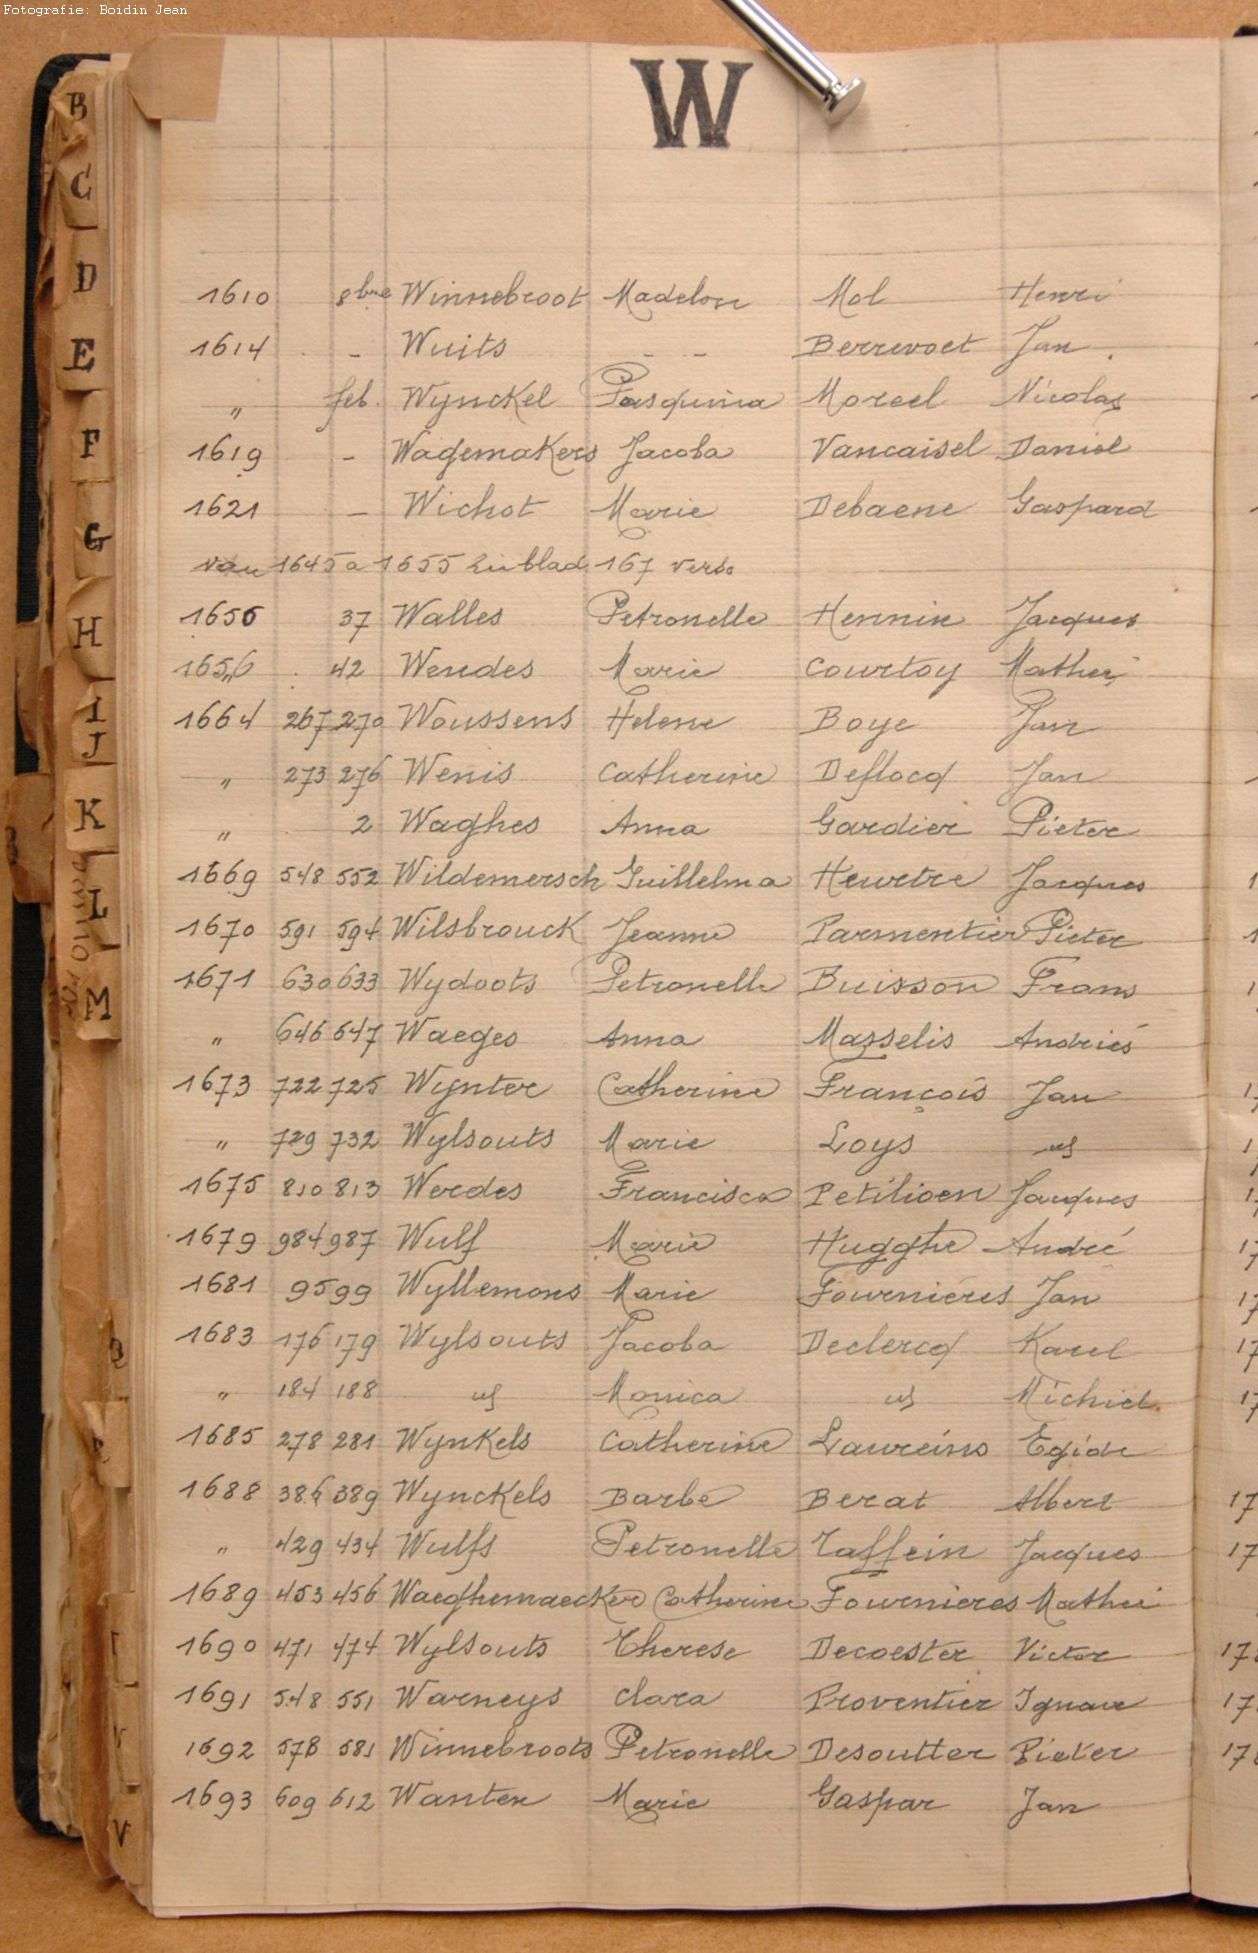 Fotografie: Boidin Jean
W
B
C
D
E
F
G
H
I
J
K
L
M
1610 8bre Winnebroot Madelon Mol Henri
1614 - Wuits - - Berrevoet Jan
" feb. Wynckel Pasquina Moreel Nicolas
1619 - Wagemakers Jacoba Vancaisel Daniel
1621 - Wichot Marie Debaene Gaspard
van 1645 a 1655 blad 167 verso
1656 37 Walles Petronelle Hennin Jacques
1656 42 Wendes Marie Courtoy Mathei
1664 267 270 Woussens Helene Boye Jan
" 273 276 Wenis Catherine Deflocq Jan
" 2 Waghes Anna Gardier Pieter
1669 548 552 Wildemersch Guillelma Heurtre Jacques
1670 591 594 Wilsbrouck Jeanne Parmentier Pieter
1671 630 633 Wydoots Petronelle Buisson Frans
" 646 647 Waeges Anna Masselis Andries
1673 722 725 Wynter Catherine François Jan
" 729 732 Wylsouts Marie Loys
1675 810 813 Werdes Francisca Petilioen Jacques
1679 984 987 Wulf Marie Hugghe André
1681 95 99 Wyllemons Marie Fournières Jan
1683 176 179 Wylsouts Jacoba Declercq Karel
" 184 188 Monica Michiel.
1685 278 281 Wynkels Catherine Laureins Egide
1688 386 389 Wynckels Barbe Berat Albert
" 429 434 Wulfs Petronelle Taffein Jacques
1689 453 456 Waeghemaecker Catherine Fournieres Mathei
1690 471 474 Wylsouts Therese Decoester Victor
1691 548 551 Warneys Clara Proventier Ignace
1692 578 581 Winnebroots Petronelle Desoutter Pieter
1693 609 612 Wanten Marie Gaspar Jan
V